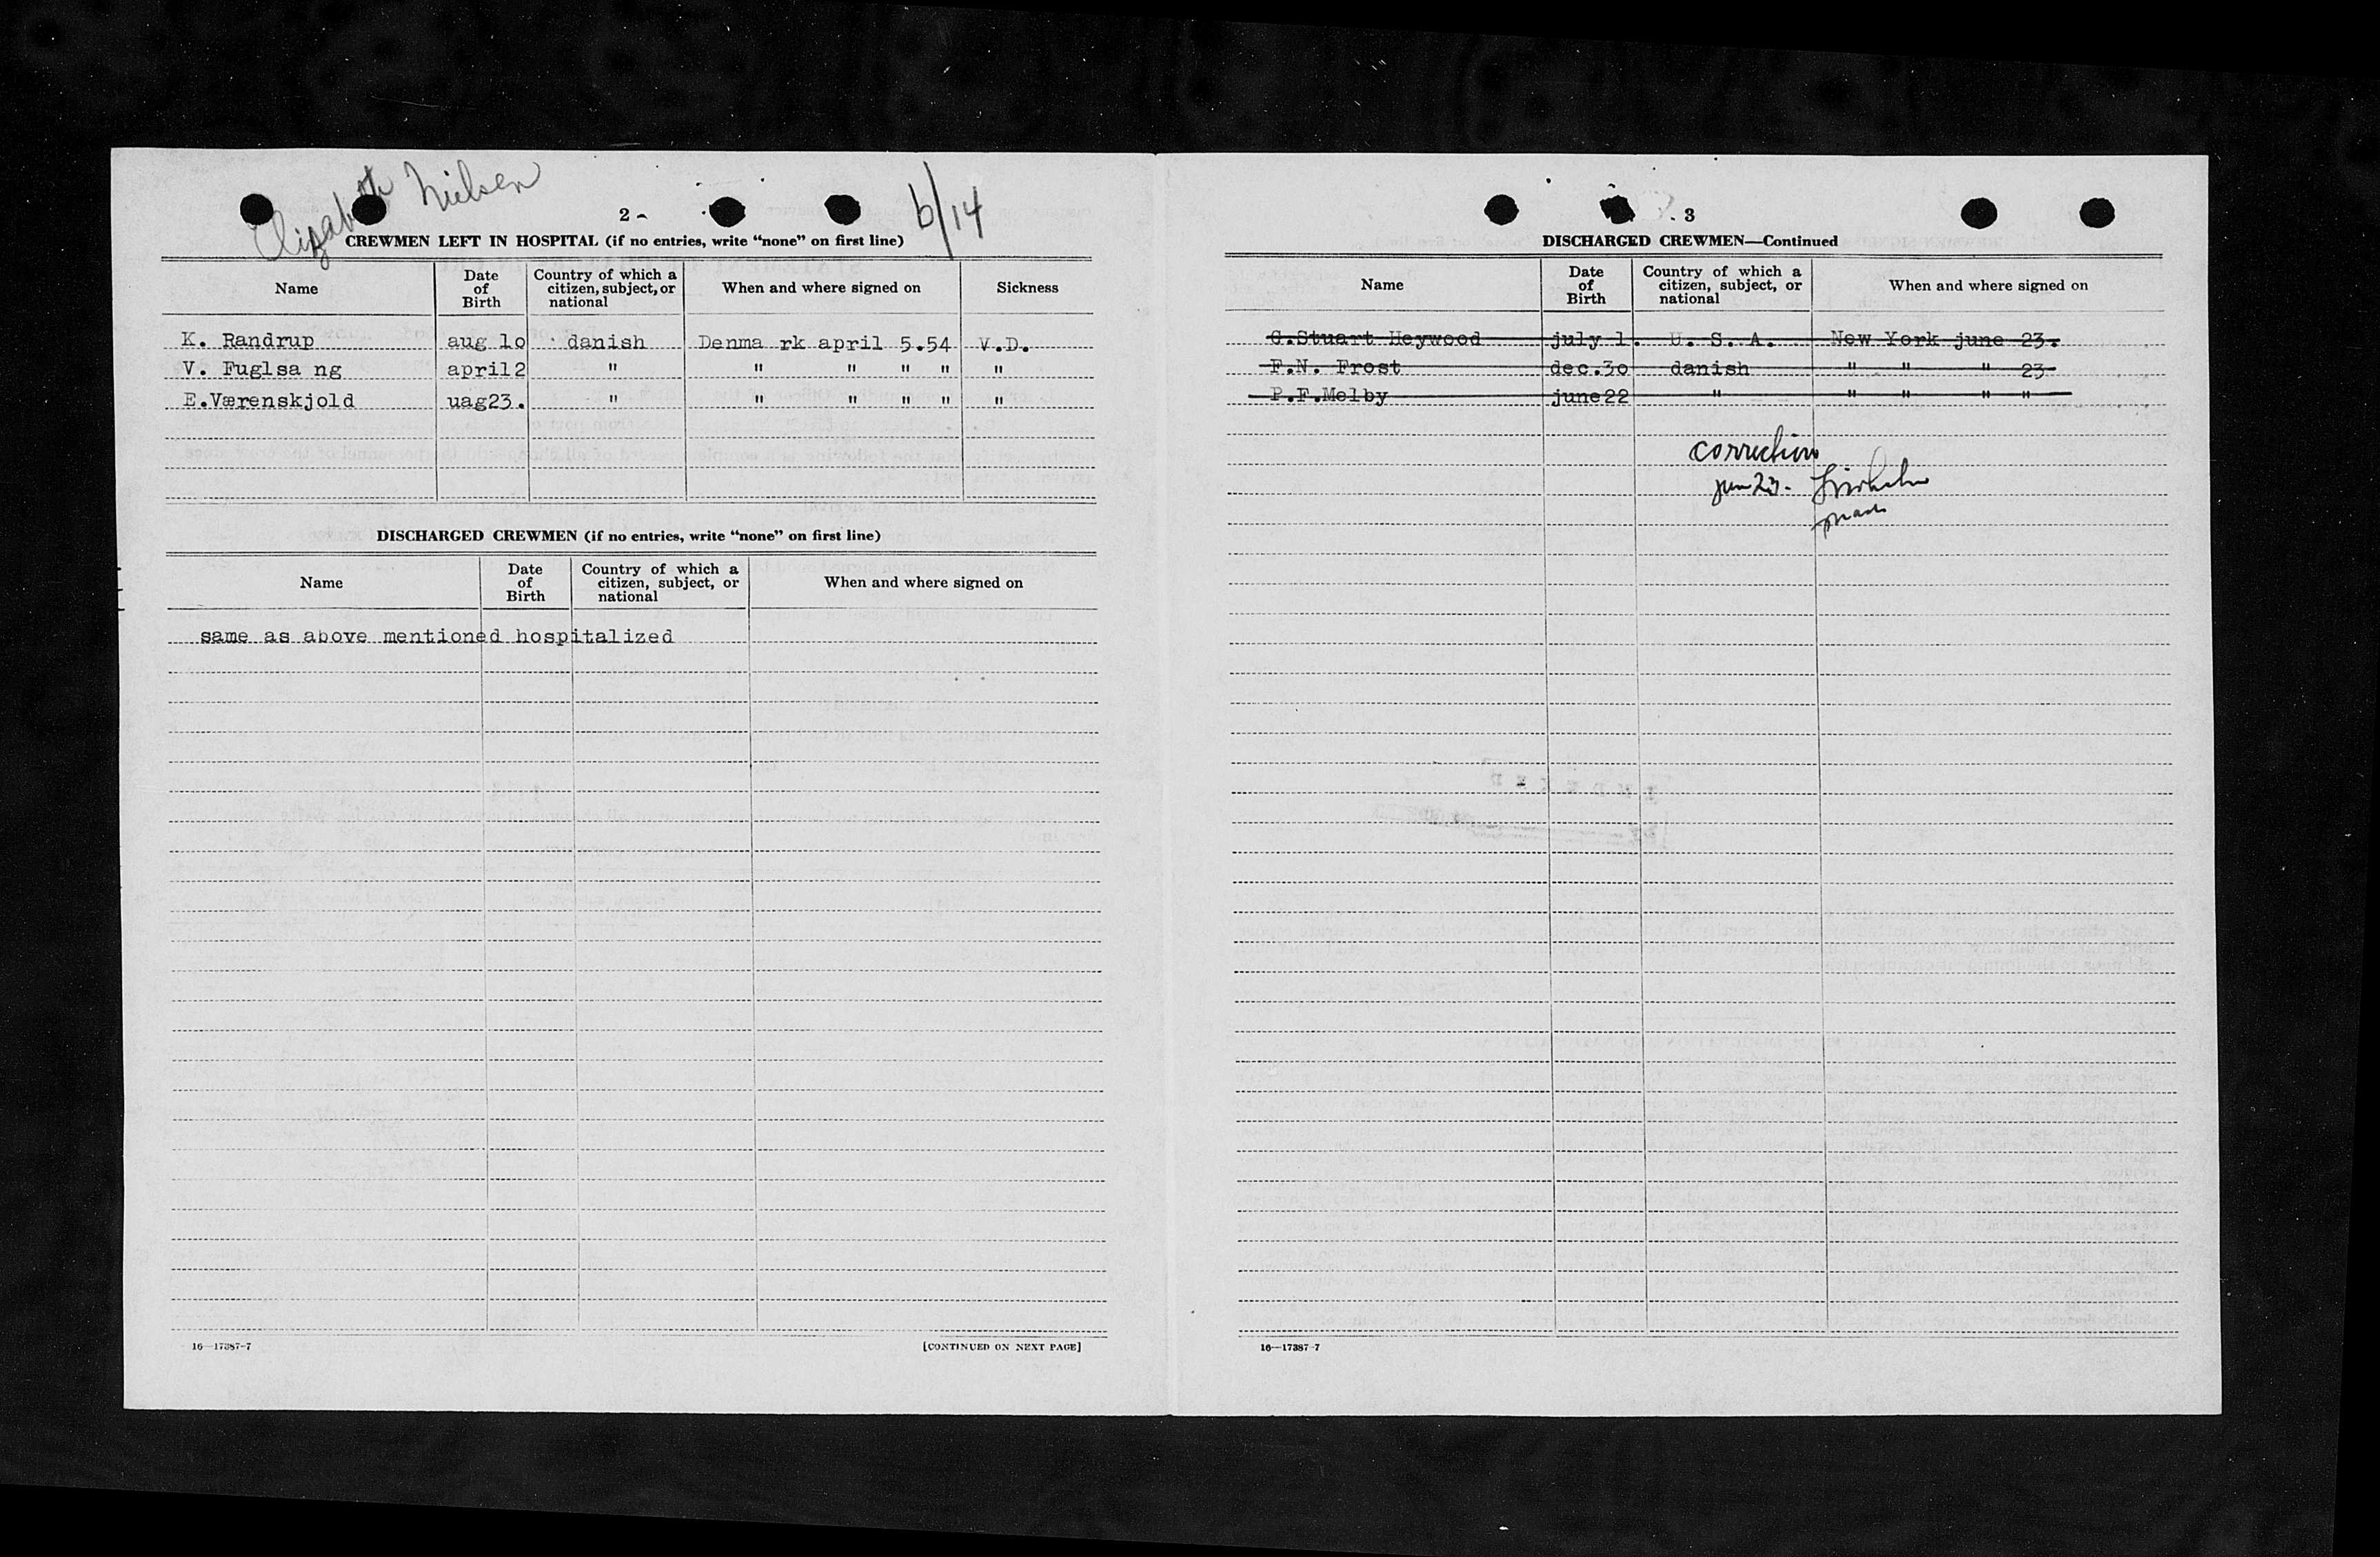 Elizabeth Nielsen
6/14
2 -
CREWMEN LEFT IN HOSPITAL (if no entries, write “none” on first line)
Name Date of Birth Country of which a citizen, subject, or national When and where signed on Sickness
K. Randrup aug 1o danish Denma rk april 5.54 V.D.
V. Fuglsa ng april2 " " " " " "
E.Værenskjold uag23. " " " " " "
DISCHARGED CREWMEN (if no entries, write “none” on first line)
Name Date of Birth Country of which a citizen, subject, or national When and where signed on
same as above mentioned hospitalized
16—17387-7 [CONTINUED ON NEXT PAGE]
3
DISCHARGED CREWMEN—Continued
Name Date of Birth Country of which a citizen, subject, or national When and where signed on
C.Stuart Heywood july 1. U. S. A. New York june 23.
F.N. Frost dec.3o danish " " " 23
P.F.Melby june22 " " " " "
correction
jun 23.
16—17387-7